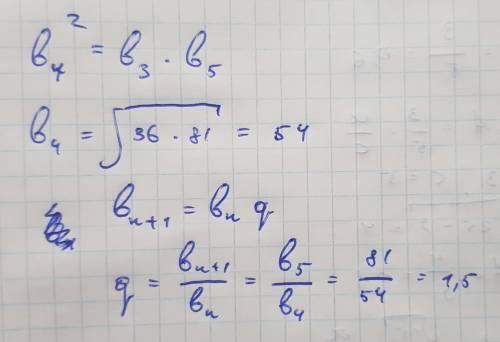 b₄² = b₃ · b₅
b₄ = √(36 · 81) = 54
bₙ₊₁ = bₙ q
q = bₙ₊₁/bₙ = b₅/b₄ = 81/54 = 1,5